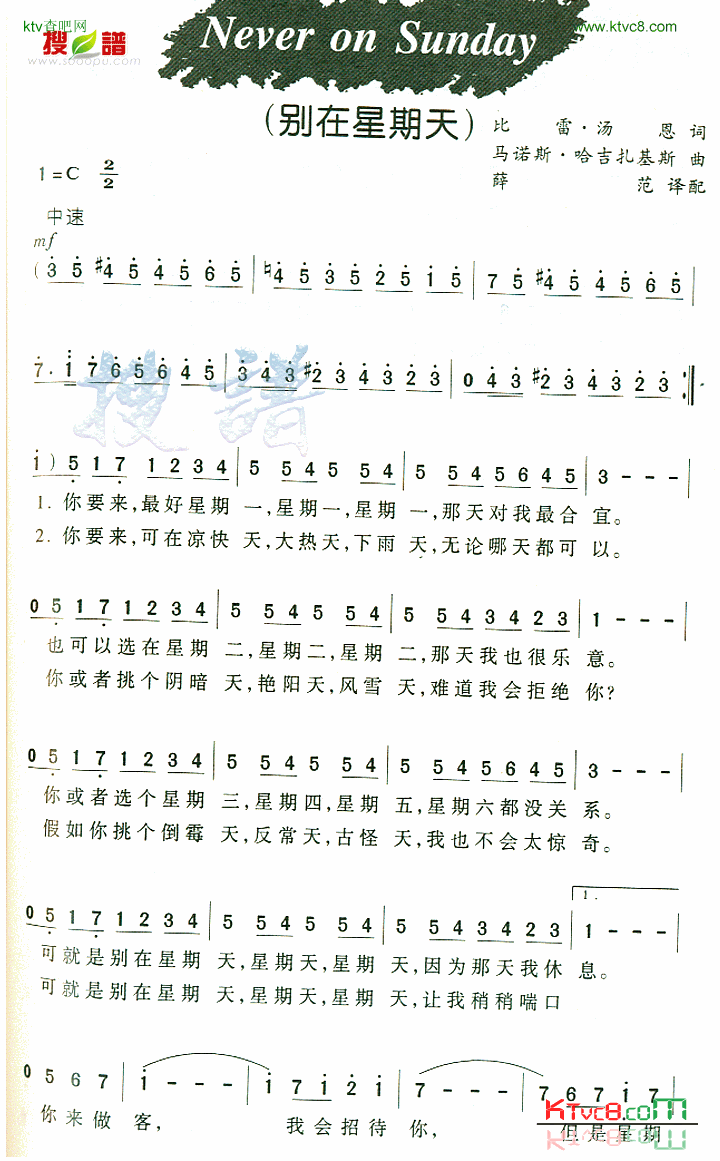 ktv查吧网
www.ktvc8.com
搜谱
www.sooopu.com
Never on Sunday
(别在星期天)
比雷·汤恩 词
马诺斯·哈吉扎基斯 曲
薛范 译配
1=C 2/2
中速
mf
(3 5 #4 5 4 5 6 5 | ♮4 5 3 5 2 5 1 5 | 7 5 #4 5 4 5 6 5 |
7· 1 7 6 5 6 4 5 | 3 4 3 #2 3 4 3 2 3 | 0 4 3 #2 3 4 3 2 3 :||
搜谱
1) 5 1 7 1 2 3 4 | 5 5 4 5 5 4 | 5 5 4 5 6 4 5 | 3 - - -
1. 你要来,最好星期一,星期一,星期一,那天对我最合宜。
2. 你要来,可在凉快天,大热天,下雨天,无论哪天都可以。
0 5 1 7 1 2 3 4 | 5 5 4 5 5 4 | 5 5 4 3 4 2 3 | 1 - - - |
也可以选在星期二,星期二,星期二,那天我也很乐意。
你或者挑个阴暗天,艳阳天,风雪天,难道我会拒绝你?
0 5 1 7 1 2 3 4 | 5 5 4 5 5 4 | 5 5 4 5 6 4 5 | 3 - - - |
你或者选个星期三,星期四,星期五,星期六都没关系。
假如你挑个倒霉天,反常天,古怪天,我也不会太惊奇。
1.
0 5 1 7 1 2 3 4 | 5 5 4 5 5 4 | 5 5 4 3 4 2 3 | 1 - - - |
可就是别在星期天,星期天,星期天,因为那天我休息。
可就是别在星期天,星期天,星期天,让我稍稍喘口
0 5 6 7 | 1 - - - | 1 7 1 2 1 | 7 - - - | 7 6 7 1 7 |
你来做客,我会招待你,但是星期
KTvc8.com